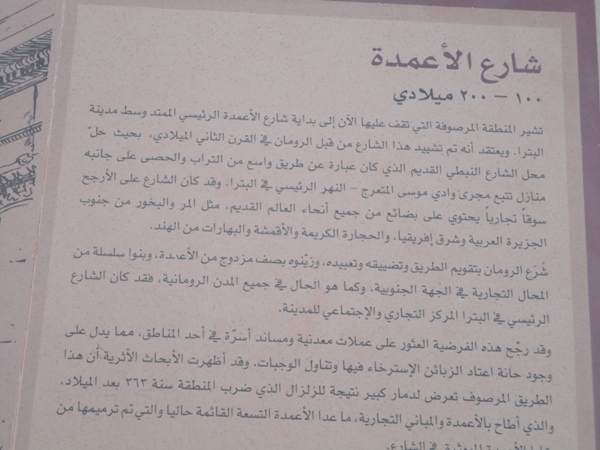 شارع الأعمدة
١٠٠ – ٢٠٠ ميلادي
تشير المنطقة المرصوفة التي تقف عليها الآن إلى بداية شارع الأعمدة الرئيسي الممتد وسط مدينة
البترا. ويعتقد أنه تم تشييد هذا الشارع من قبل الرومان في القرن الثاني الميلادي، بحيث حلّ
محل الشارع النبطي القديم الذي كان عبارة عن طريق واسع من التراب والحصى على جانبه
منازل تتبع مجرى وادي موسى المتعرج – النهر الرئيسي في البترا. وقد كان الشارع على الأرجح
سوقاً تجارياً يحتوي على بضائع من جميع أنحاء العالم القديم، مثل المر والبخور من جنوب
الجزيرة العربية وشرق إفريقيا، والحجارة الكريمة والأقمشة والبهارات من الهند.
شَرَع الرومان بتقويم الطريق وتضييقه وتعبيده، وزيّنوه بصف مزدوج من الأعمدة، وبنوا سلسلة من
المحال التجارية في الجهة الجنوبية. وكما هو الحال في جميع المدن الرومانية، فقد كان الشارع
الرئيسي في البترا المركز التجاري والإجتماعي للمدينة.
وقد رجّح هذه الفرضية العثور على عملات معدنية ومساند أسرّة في أحد المناطق، مما يدل على
وجود حانة اعتاد الزبائن الإسترخاء فيها وتناول الوجبات. وقد أظهرت الأبحاث الأثرية أن هذا
الطريق المرصوف تعرض لدمار كبير نتيجة للزلزال الذي ضرب المنطقة سنة ٣٦٣ بعد الميلاد،
والذي أطاح بالأعمدة والمباني التجارية، ما عدا الأعمدة التسعة القائمة حاليا والتي تم ترميمها من
في الشارع.